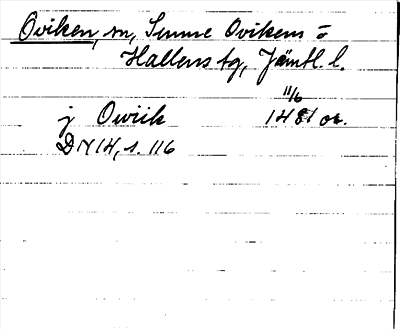 Oviken, sn, Sunne Ovikens o
Hallens tg, Jämtl. l.
j Owiik 11/6 1481 or.
DN 14, s. 116